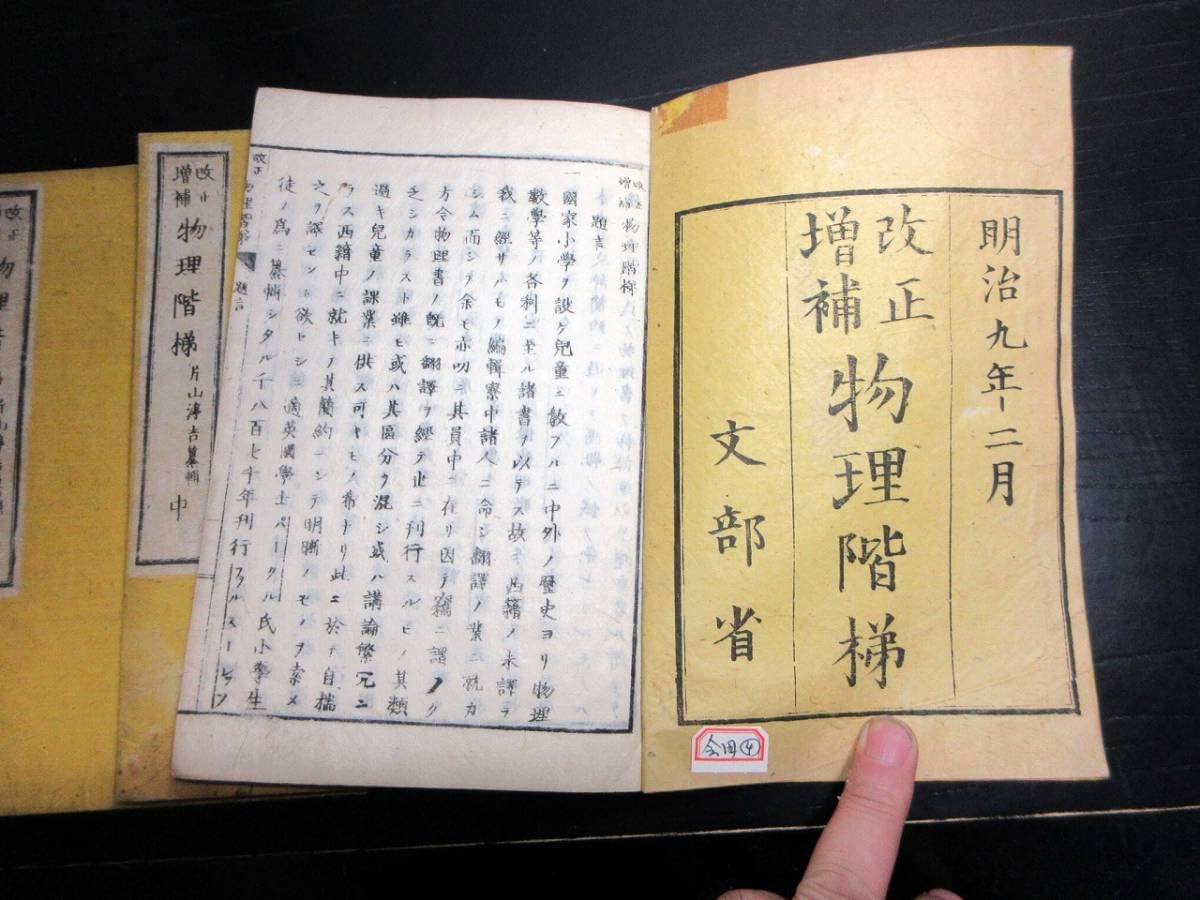 明治九年二月
改正
増補
物理階梯
文部省
会田④
改正
増補
物理階梯
題言
一國家小學ヲ設ケ兒童ニ教フルニ中外ノ歷史ヨリ物理
數學等ノ各科ニ至ル諸書ヲ以テス故ニ西籍ノ未譯ヲ
我ニ經サルモノ編輯寮中諸人ニ命シ翻譯ノ業ニ就カ
シム而シテ余モ亦叨ニ其員中ニ在リ因テ竊ニ謂ラク
方今物理書ノ旣ニ翻譯ヲ經テ上ニ刊行スルモノ其類
乏シカラスト雖ヒ或ハ其區分ヲ混シ或ハ講論繁冗ニ
過キ兒童ノ課業ニ供ス可キモノ希ナリ此ニ於テ自揣
ラス西籍中ニ就キ其簡約ニシテ明晰ノモノヲ索メ
之ヲ譯セント欲セシニ適英國學士パークル氏小學生
徒ノ爲ニ纂輯シタル千八百七十年刊行
改正
題言
改正
増補
物理階梯
片山淳吉纂輯
中
改正
物理